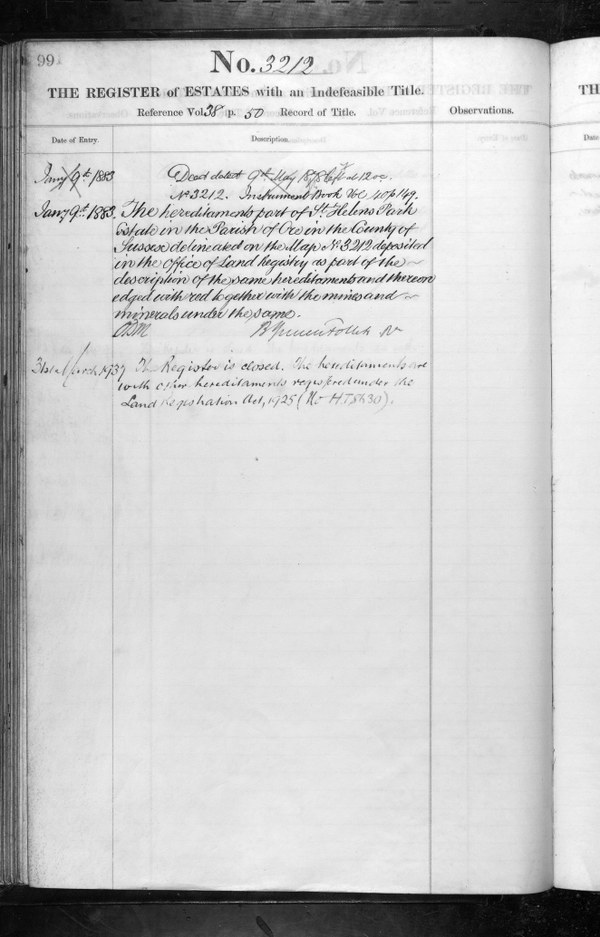 99
No. 3212
THE REGISTER of ESTATES with an Indefeasible Title.
Reference Vol. 38 p. 50 Record of Title.
Observations.
Date of Entry.
Description.
Jany 9th 1883
Deed dated 9th May 1878 at 12 oc.
No 3212. Instrument Book Vol 40 p 149.
Jany 9th 1883. The hereditaments part of St Helens Park
Estate in the Parish of Ore in the County of
Sussex delineated on the Map No 3212 deposited
in the Office of Land Registry as part of the
description of the same hereditaments and thereon
edged with red together with the mines and
minerals under the same.
Brent Spencer Follett
31st March 1937 The Register is closed. The hereditaments are
with other hereditaments registered under the
Land Registration Act, 1925 (No HT8630).
TH
Date